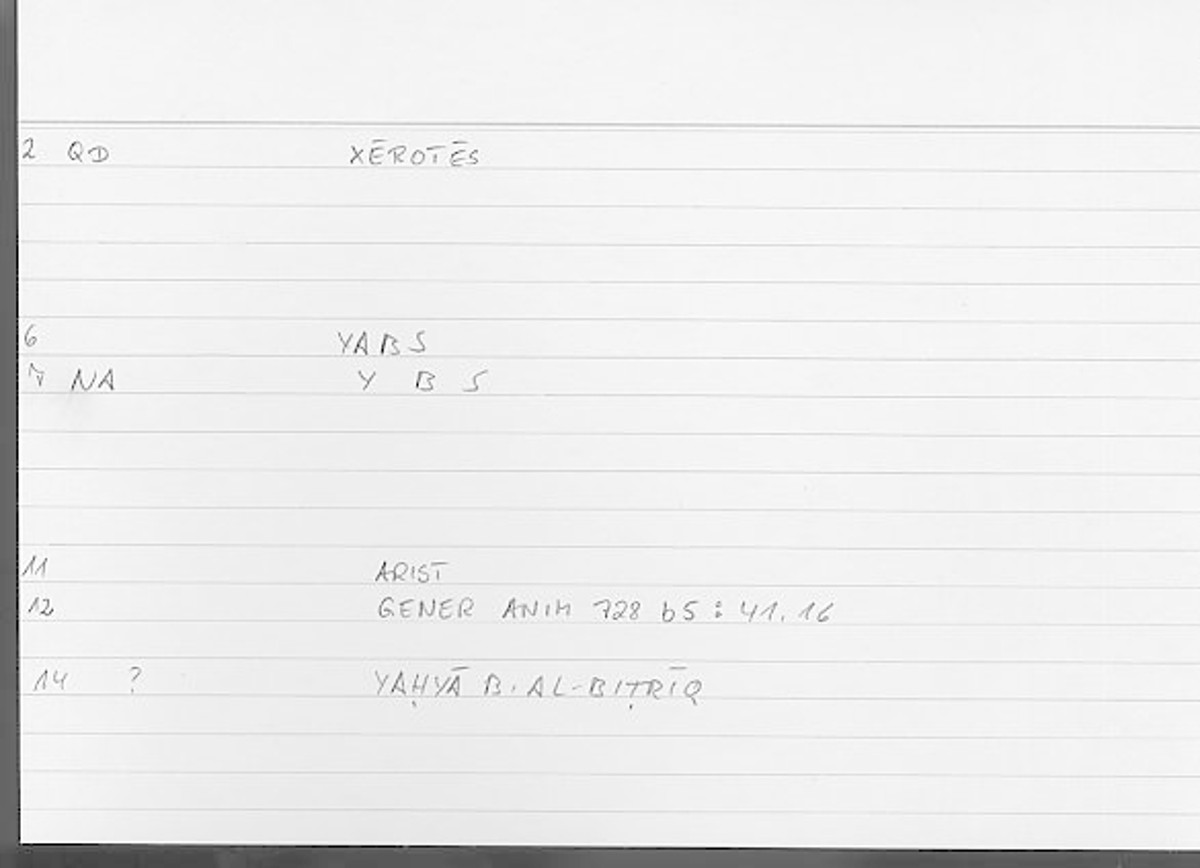 2 QD XĒROTĒS
6 YABS
7 NA Y B S
11 ARIST
12 GENER ANIM 728 b5 : 41.16
14 ? YAḤYĀ B. AL-BIṬRĪQ